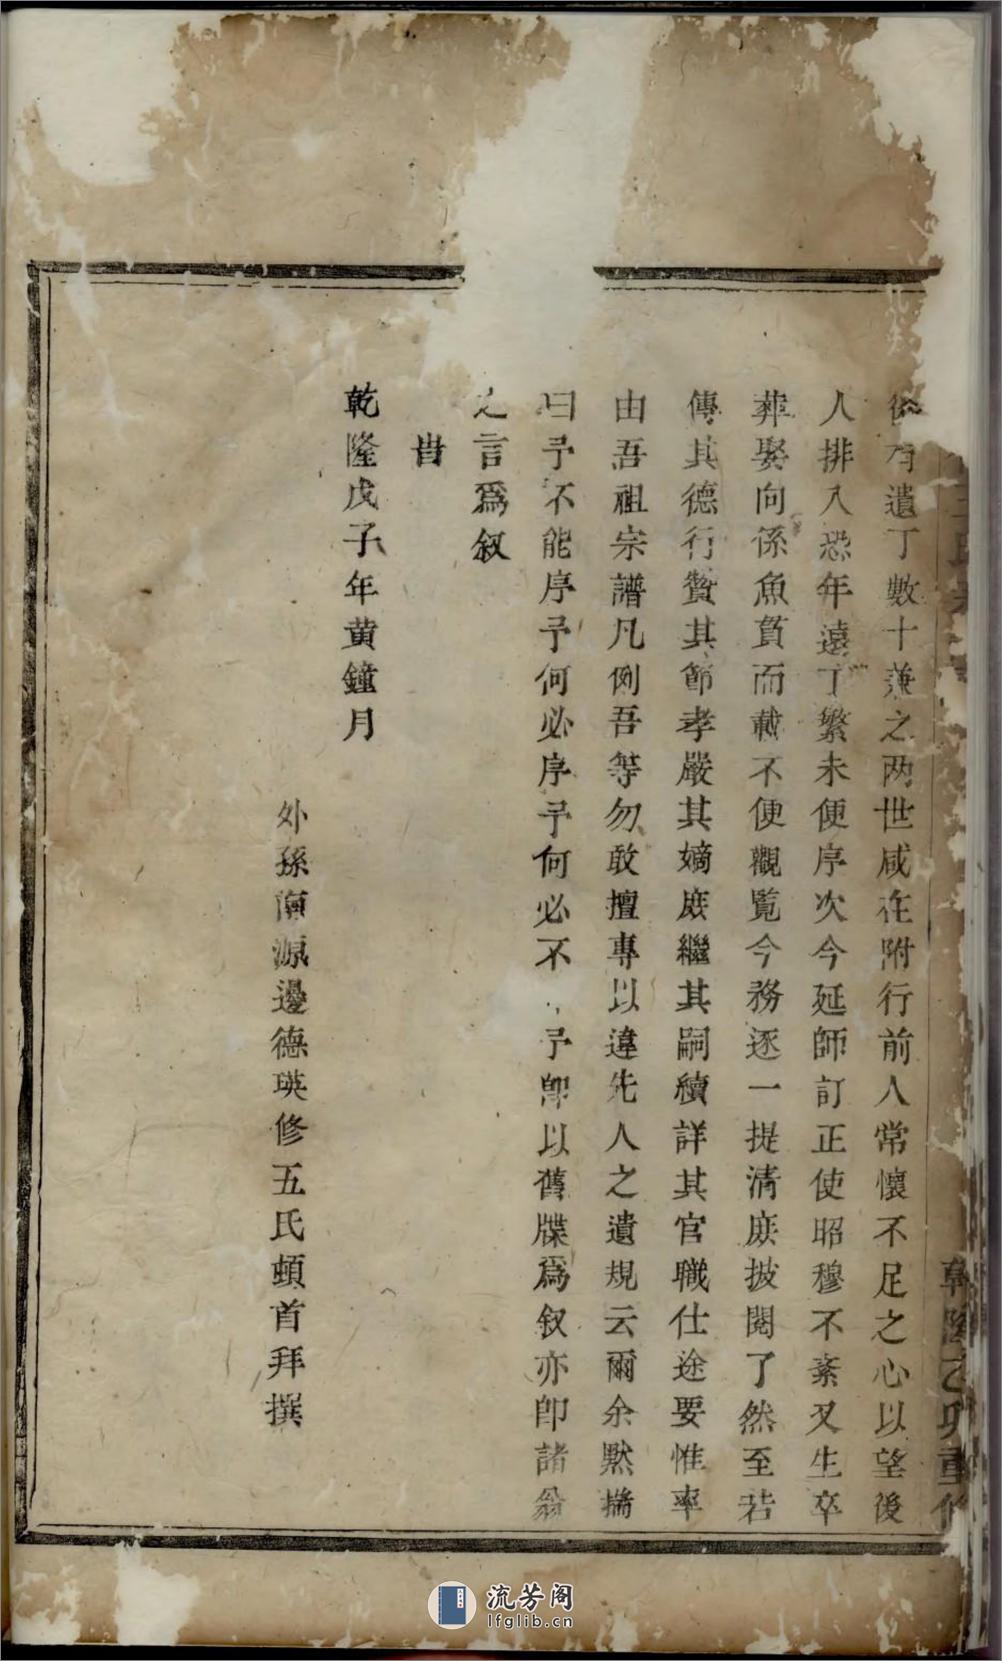 有遺丁數十兼之两世咸在附行前人常懷不足之心以望後
人排入恐年遠丁繁未便序次今延師訂正使昭穆不紊又生卒
葬娶向係魚貫而載不便觀覧今務逐一提清庻披閱了然至若
傳其德行贊其節孝嚴其嫡庻繼其嗣續詳其官職仕途要惟率
由吾祖宗譜凡例吾等勿敢擅專以違先人之遺規云爾余默揣
曰予不能序予何必序予何必不予卽以舊牒爲叙亦卽諸翁
之言爲叙
旹
乾隆戊子年黄鐘月
外孫南源邊德瑛修五氏頓首拜撰
乾隆乙卯重修
流芳阁
lfglib.cn